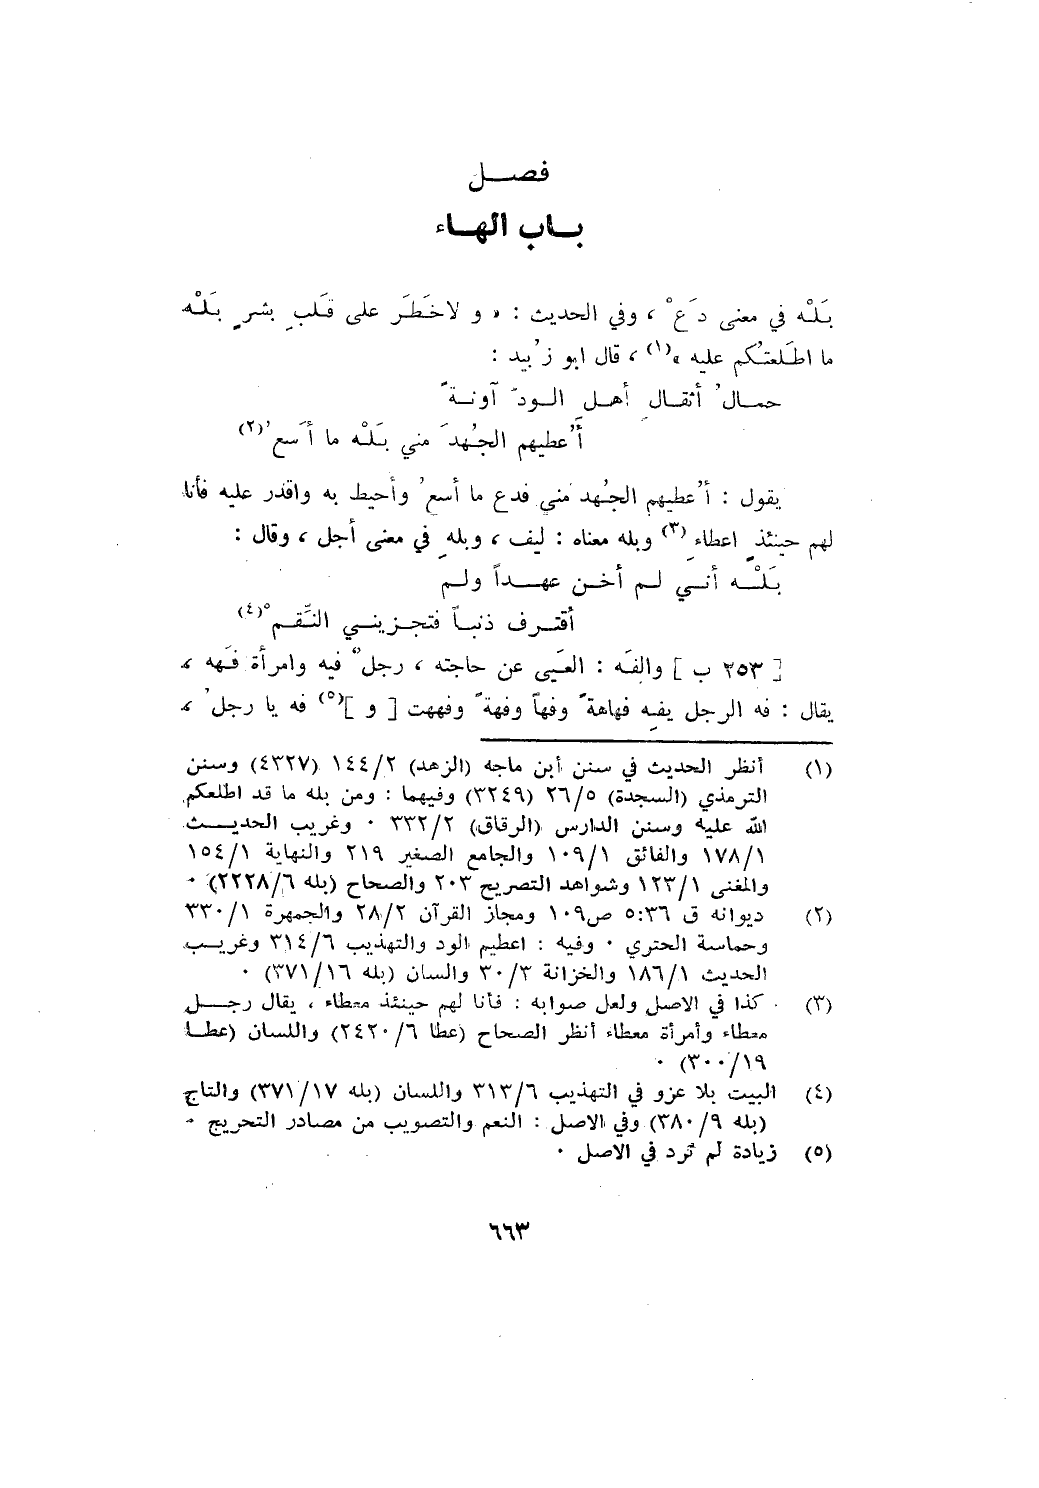 فصــل
بــاب الهــاء
بَلْه في معنى دَعْ ، وفي الحديث : « و لاخَطَرَ على قَلبِ بشرٍ بَلْه
ما اطلَعتُكم عليه »(١) ، قال ابو زُبيد :
حمــالُ أثقــالِ أهــل الــودّ آونــةً
أُعطيهم الجُهدَ مني بَلْه ما أَسَعُ(٢)
يقول : أُعطيهم الجُهد مني فدع ما أسعُ وأحيط به واقدر عليه فأنا
لهم حينئذٍ اعطاء (٣) وبله معناه : ليف ، وبلهِ في معنى أجل ، وقال :
بَلْــه أنــي لــم أخــن عهــداً ولــم
أقتــرف ذنبــاً فتجــزيني النِّقــمْ(٤)
[ ٢٥٣ ب ] والفَه : العَيي عن حاجته ، رجلٌ فيه وامرأة فَهه ،
يقال : فه الرجل يفِه فهاهةً وفهاً وفهةً وفههت [ و ](٥) فه يا رجلُ ،
(١) أنظر الحديث في سنن أبن ماجه (الزهد) ١٤٤/٢ (٤٣٢٧) وسنن
الترمذي (السجدة) ٢٦/٥ (٣٢٤٩) وفيهما : ومن بله ما قد اطلعكم
الله عليه وسنن الدارس (الرقاق) ٣٣٢/٢ . وغريب الحديــث
١٧٨/١ والفائق ١٠٩/١ والجامع الصغير ٢١٩ والنهاية ١٥٤/١
والمغنى ١٢٣/١ وشواهد التصريح ٢٠٣ والصحاح (بله ٢٢٢٨/٦) .
(٢) ديوانه ق ٥:٣٦ ص١٠٩ ومجاز القرآن ٢٨/٢ والجمهرة ٣٣٠/١
وحماسة الحتري . وفيه : اعطيم الود والتهذيب ٣١٤/٦ وغريــب
الحديث ١٨٦/١ والخزانة ٣٠/٣ والسان (بله ٣٧١/١٦) .
(٣) كذا في الاصل ولعل صوابه : فأنا لهم حينئذ معطاء ، يقال رجــل
معطاء وأمرأة معطاء أنظر الصحاح (عطا ٢٤٢٠/٦) واللسان (عطــا
٣٠٠/١٩) .
(٤) البيت بلا عزو في التهذيب ٣١٣/٦ واللسان (بله ٣٧١/١٧) والتاج
(بله ٣٨٠/٩) وفي الاصل : النعم والتصويب من مصادر التحريج .
(٥) زيادة لم ترد في الاصل .
٦٦٣